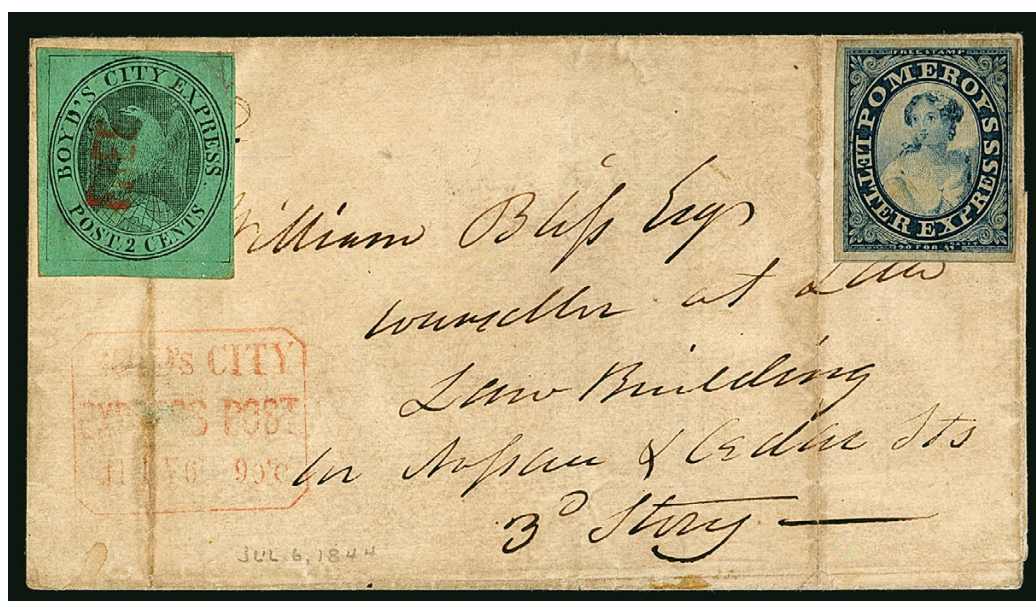 BOYD'S CITY EXPRESS.
POST. 2 CENTS
FREE STAMP
POMEROYS
LETTER EXPRESS
20 FOR $1
William Bliss Esqr
Counsellor at Law
Law Building
Cor Nassau & Cedar Sts
3D Story
BOYD'S CITY
EXPRESS POST
JUL 6 9 O'C
JUL. 6, 1844